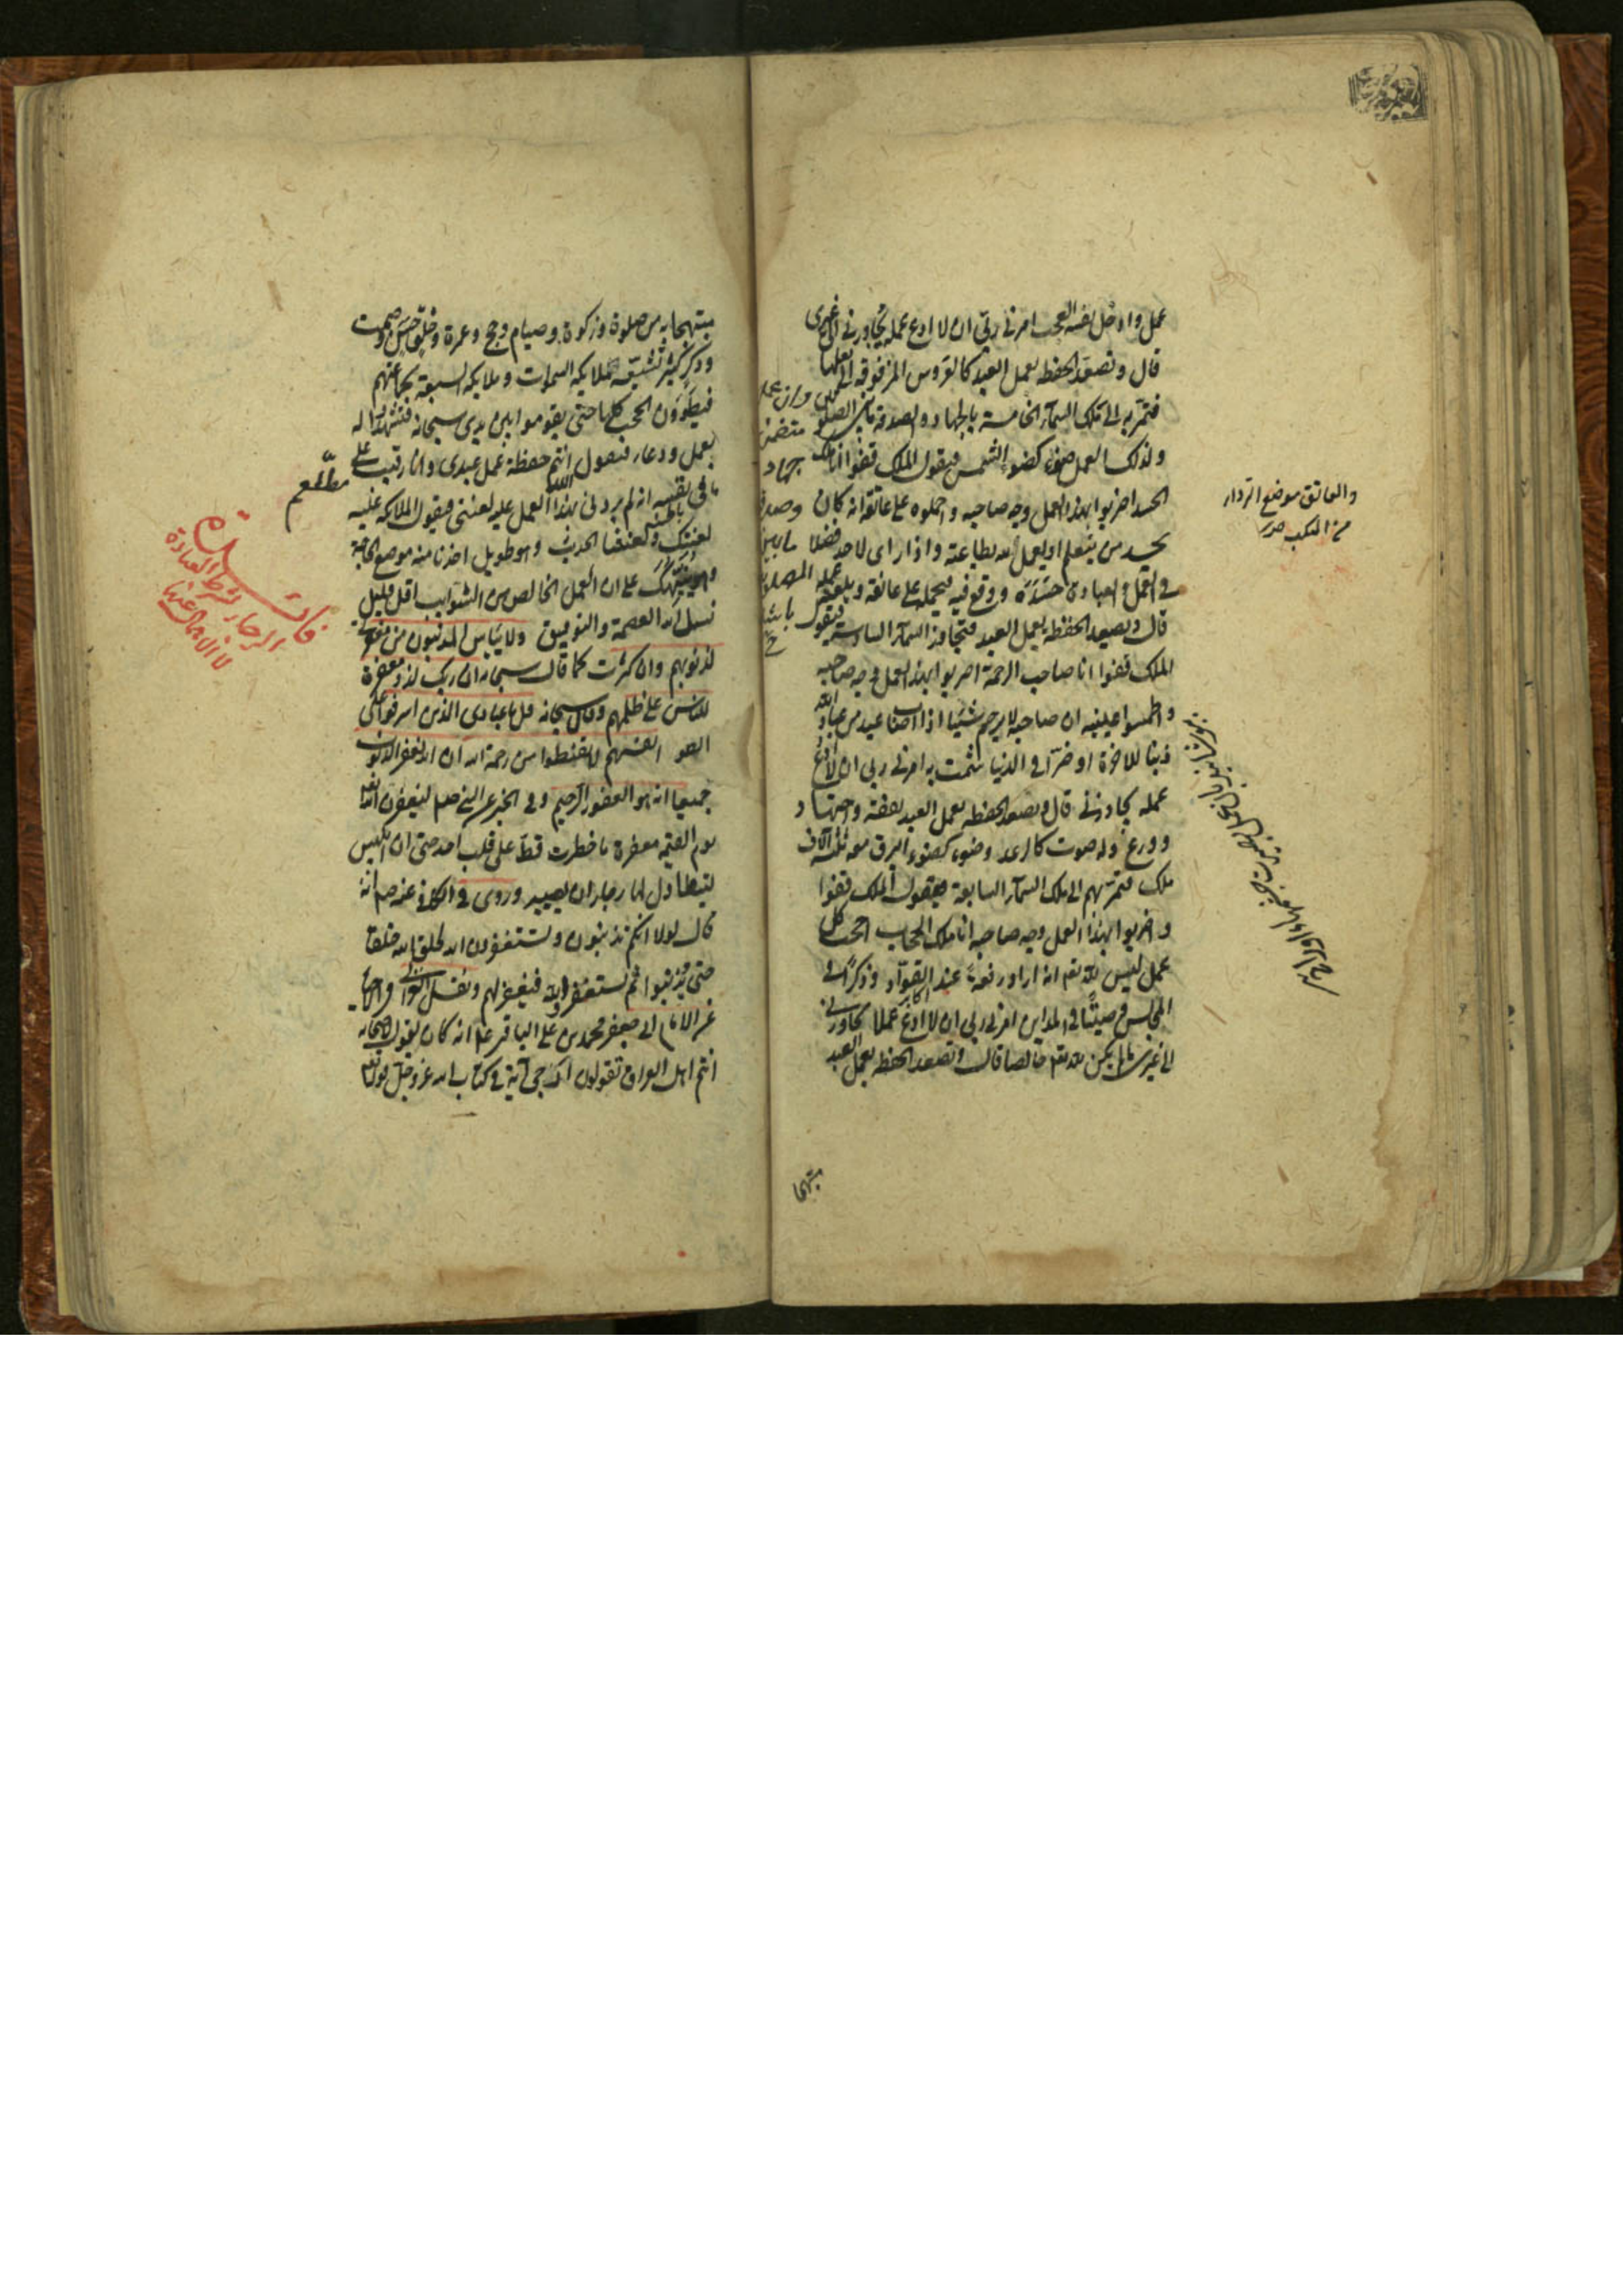 عمل وادخل نفسه العجب امرنى ربّى ان لا ادع عمله يتجاوزنى الى غيرى
قال وتصعد الحفظة بعمل العبد كالعروس المزفوفة الى بعلها
فتمرّ به الى ملك السمآء الخامسة بالجهاد والصدقة ما بين الصلوتين
ولذلك العمل ضوء كضوء الشمس فيقول الملك قفوا انا ملك
الحسد اضربوا بهذا العمل وجه صاحبه واحملوه على عاتقه انه كان
يحسد من يتعلم او يعمل لله بطاعته واذا راى لاحد فضلا
فى العمل والعبادة حسده ووقع فيه فيحمله على عاتقه ويلعنه عمله
قال وتصعد الحفظة بعمل العبد فتجاوز السمآء السادسة فيقول
الملك قفوا انا صاحب الرحمة اضربوا بهذا العمل وجه صاحبه
واطمسوا عينيه ان صاحبه لا يرحم شيئا اذا اصاب عبد من عباد الله
ذنبا للاخرة او ضرّا فى الدنيا شمت به امرنى ربى ان لا ادع
عمله يجاوزنى قال وتصعد الحفظه بعمل العبد بفقه واجتهاد
وورع وله صوت كالرعد وضوء كضوء البرق ومعه ثلثة آلاف
ملك فتمرّ بهم الى ملك السمآء السابعة فيقول الملك قفوا
واضربوا بهذا العمل وجه صاحبه انا ملك الحجاب احجب كل
عمل ليس لله تعم انه اراد رفعة عند القوّاد وذكرًا فى
المجالس وصيتًا فى المداين امرنى ربى ان لا ادع عملا يجاوزنى
الى غيرى ما لم يكن لله تعم خالصا قال وتصعد الحفظه بعمل العبد
مبتهجا
والعاتق موضع الرداء
من المنكب
وان عمله
متضمن
جهاد
وصدقة
مبتهجا به من صلوة وزكوة وصيام وحج وعمرة وخلق حسن وصمت
وذكر كثير تشيّعه ملايكة السموات وملايكة السبعة بجماعتهم
فيطؤون الحجب كلها حتى يقوموا بين يدى سبحانه فيشهدوا له
بعمل ودعاء فيقول انتم حفظة عمل عبدى وانا رقيب على
ما فى نفسه انه لم يردنى بهذا العمل عليه لعنتى فيقول الملائكة عليه
لعنتك ولعنتنا الحديث وهو طويل اخذنا منه موضع الحاجة
وهو ينبّهك على ان العمل الخالص من الشوايب اقل قليل
نسل الله العصمة والتوفيق ولا ييأس المذنبون من مغفرتى
لذنوبهم وان كثرت كما قال سبحانه ان ربك لذو مغفرة
للناس على ظلمهم وقال سبحانه قل يا عبادى الذين اسرفوا على
انفسهم لا تقنطوا من رحمة الله ان الله يغفر الذنوب
جميعا انه هو الغفور الرحيم وفى الخبر عن النبى صلم ليغفرن الله تعالى
يوم القيمة مغفرة ما خطرت قط على قلب احد حتى ان ابليس
ليتطاول لها رجاء ان يصيبه وروى فى الكافى عنه صم انه
قال لولا انكم تذنبون وتستغفرون الله لخلق الله خلقا
حتى يذنبوا ثم يستغفروا الله فيغفر لهم ونقل الغزالى فى الاحياء
عن الامام ابى جعفر محمد بن على الباقر عم انه كان يقول لاصحابه
انتم اهل العراق تقولون ارجى آية فى كتاب الله عز وجل قوله
مطّلع
فان
الرجاء شرط العبادة